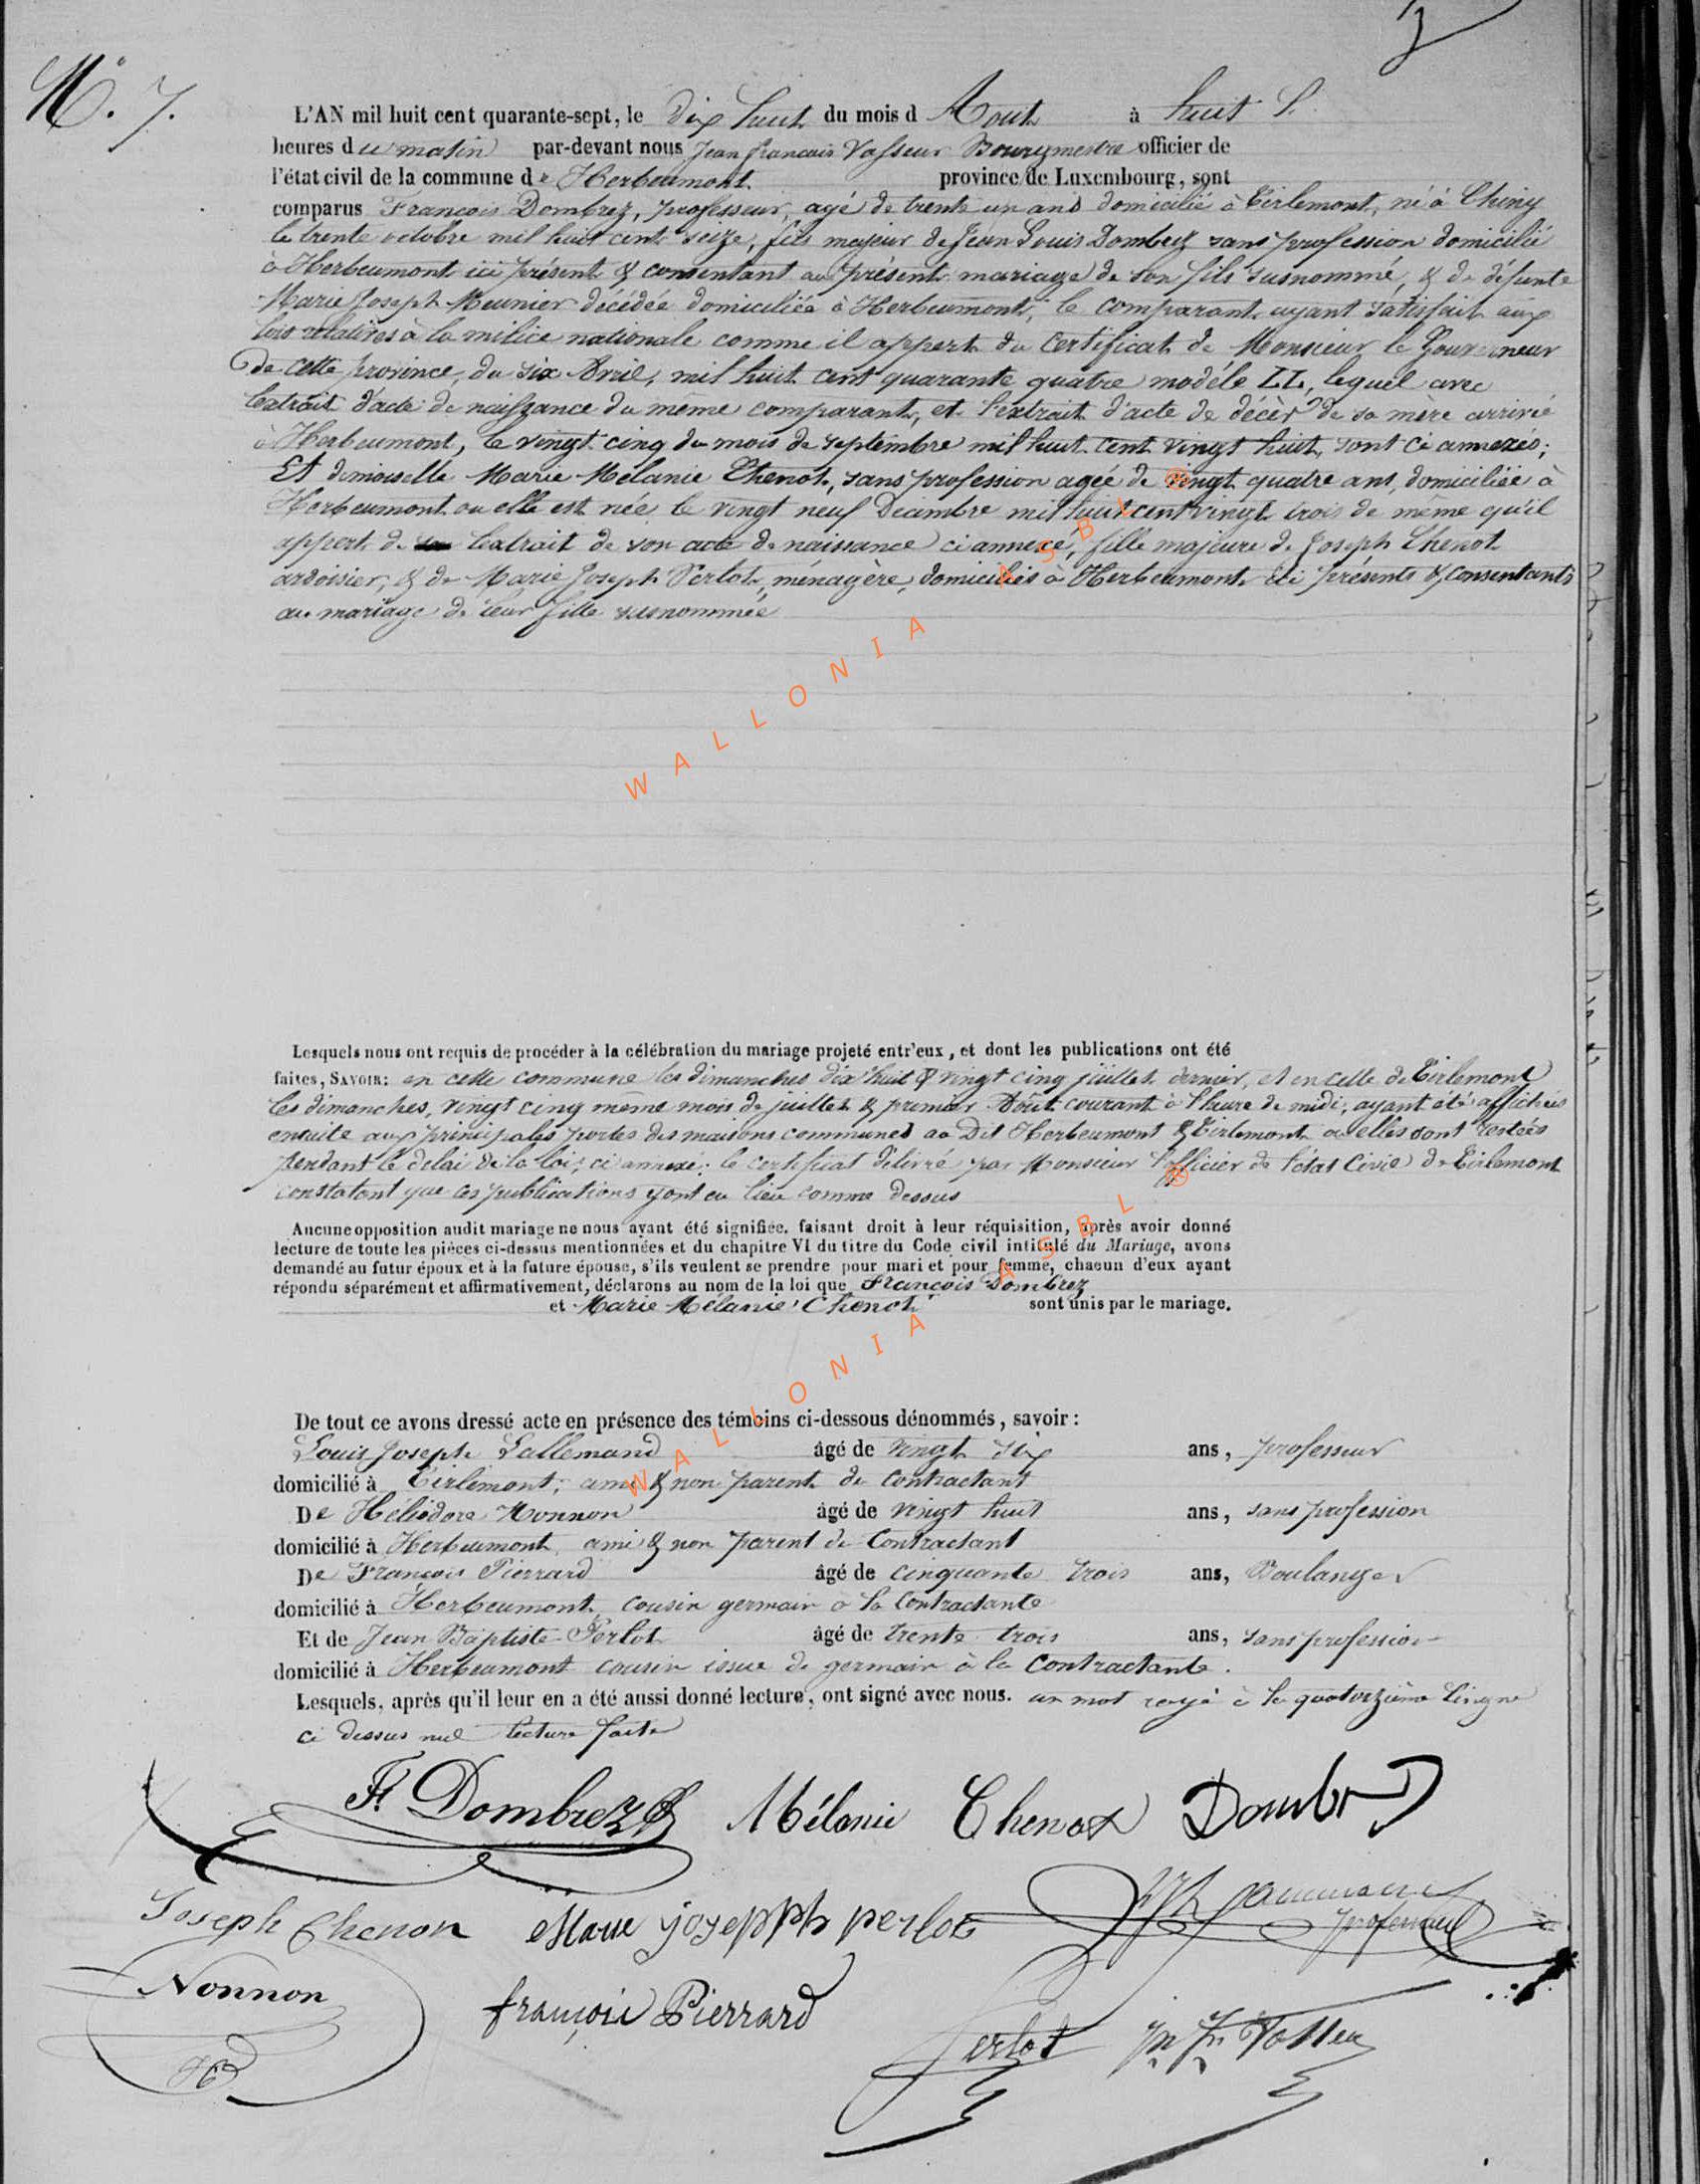 3
N.° 7.
L'AN mil huit cent quarante-sept, le dix huit du mois d Aout à huit
heures du matin par-devant nous Jean francois Vasseur Bourgmestre officier de
l'état civil de la commune de Herbeumont province de Luxembourg, sont
comparus François Dombrez, professeur, agé de trente un ans domicilié à Tirlemont, né à Chiny
le trente octobre mil huit cent seize, fils majeur de Jean Louis Dombrez sans profession domicilié
à Herbeumont ici présent & consentant au présent mariage de son fils susnommé, & de défunte
Marie Joseph Meunier décédée domiciliée à Herbeumont; le comparant ayant satisfait aux
lois relatives à la milice nationale comme il appert du certificat de Monsieur le Gouverneur
de cette province, du six Avril, mil huit cent quarante quatre modéle LL, lequel avec
l'extrait d'acte de naissance du même comparant, et l'extrait d'acte de décès de sa mère arrivé
à Herbeumont, le vingt cinq du mois de septembre mil huit cent vingt huit, sont ci annexés;
Et demoiselle Marie Mélanie Chenot, sans profession agée de vingt quatre ans, domiciliée à
Herbeumont ou elle est née le vingt neuf Decembre mil huit cent vingt trois de même qu'il
appert de l'extrait de son acte de naissance ci annexé, fille majeure de Joseph Chenot
ardoisier, & de Marie Joseph Perlot, ménagère, domiciliés à Herbeumont ici présents & consentants
au mariage de leur fille susnommée
WALLONIA ASBL ®
Lesquels nous ont requis de procéder à la célébration du mariage projeté entr'eux, et dont les publications ont été
faites, SAVOIR: en cette commune les dimanches dix huit & vingt cinq juillet dernier, et en celle de Tirlemont
les dimanches, vingt cinq même mois de juillet & premier Août courant à l'heure de midi, ayant été affichées
ensuite aux principales portes des maisons communes au Dit Herbeumont & Tirlemont ou elles sont restées
pendant le delai de la loi; ci annexé; le certificat délivré par Monsieur l'officier de l'état Civil de Tirlemont
constatant que ces publications y ont eu lieu comme dessus
Aucune opposition audit mariage ne nous ayant été signifiée. faisant droit à leur réquisition, après avoir donné
lecture de toute les pièces ci-dessus mentionnées et du chapitre VI du titre du Code civil intitulé du Mariage, avons
demandé au futur époux et à la future épouse, s'ils veulent se prendre pour mari et pour femme, chacun d'eux ayant
répondu séparément et affirmativement, déclarons au nom de la loi que François Dombrez
et Marie Mélanie Chenot sont unis par le mariage.
WALLONIA ASBL ®
De tout ce avons dressé acte en présence des témoins ci-dessous dénommés, savoir:
Louis Joseph Lallemand âgé de vingt six ans, professeur
domicilié à Tirlemont, ami & non parent du contractant
De Héliodore Nonnon âgé de vingt huit ans, sans profession
domicilié à Herbeumont, ami & non parent du Contractant
De François Pierrard âgé de cinquante trois ans, Boulanger
domicilié à Herbeumont, cousin germain à la Contractante
Et de Jean Baptiste Perlot âgé de trente trois ans, sans profession
domicilié à Herbeumont cousin issue de germain à la contractante.
Lesquels, après qu'il leur en a été aussi donné lecture, ont signé avec nous. un mot rayé à la quatorzième ligne
ci dessus nul lecture faite
F. Dombrez Mélanie Chenot Dombrez
Joseph Chenon Marie josepph perlot professeur
Nonnon françois Pierrard
H Perlot Jn Fs Vasseur